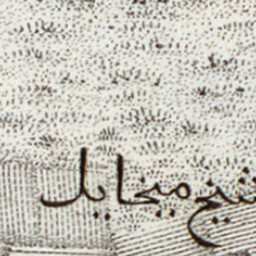 شيخ ميخايل